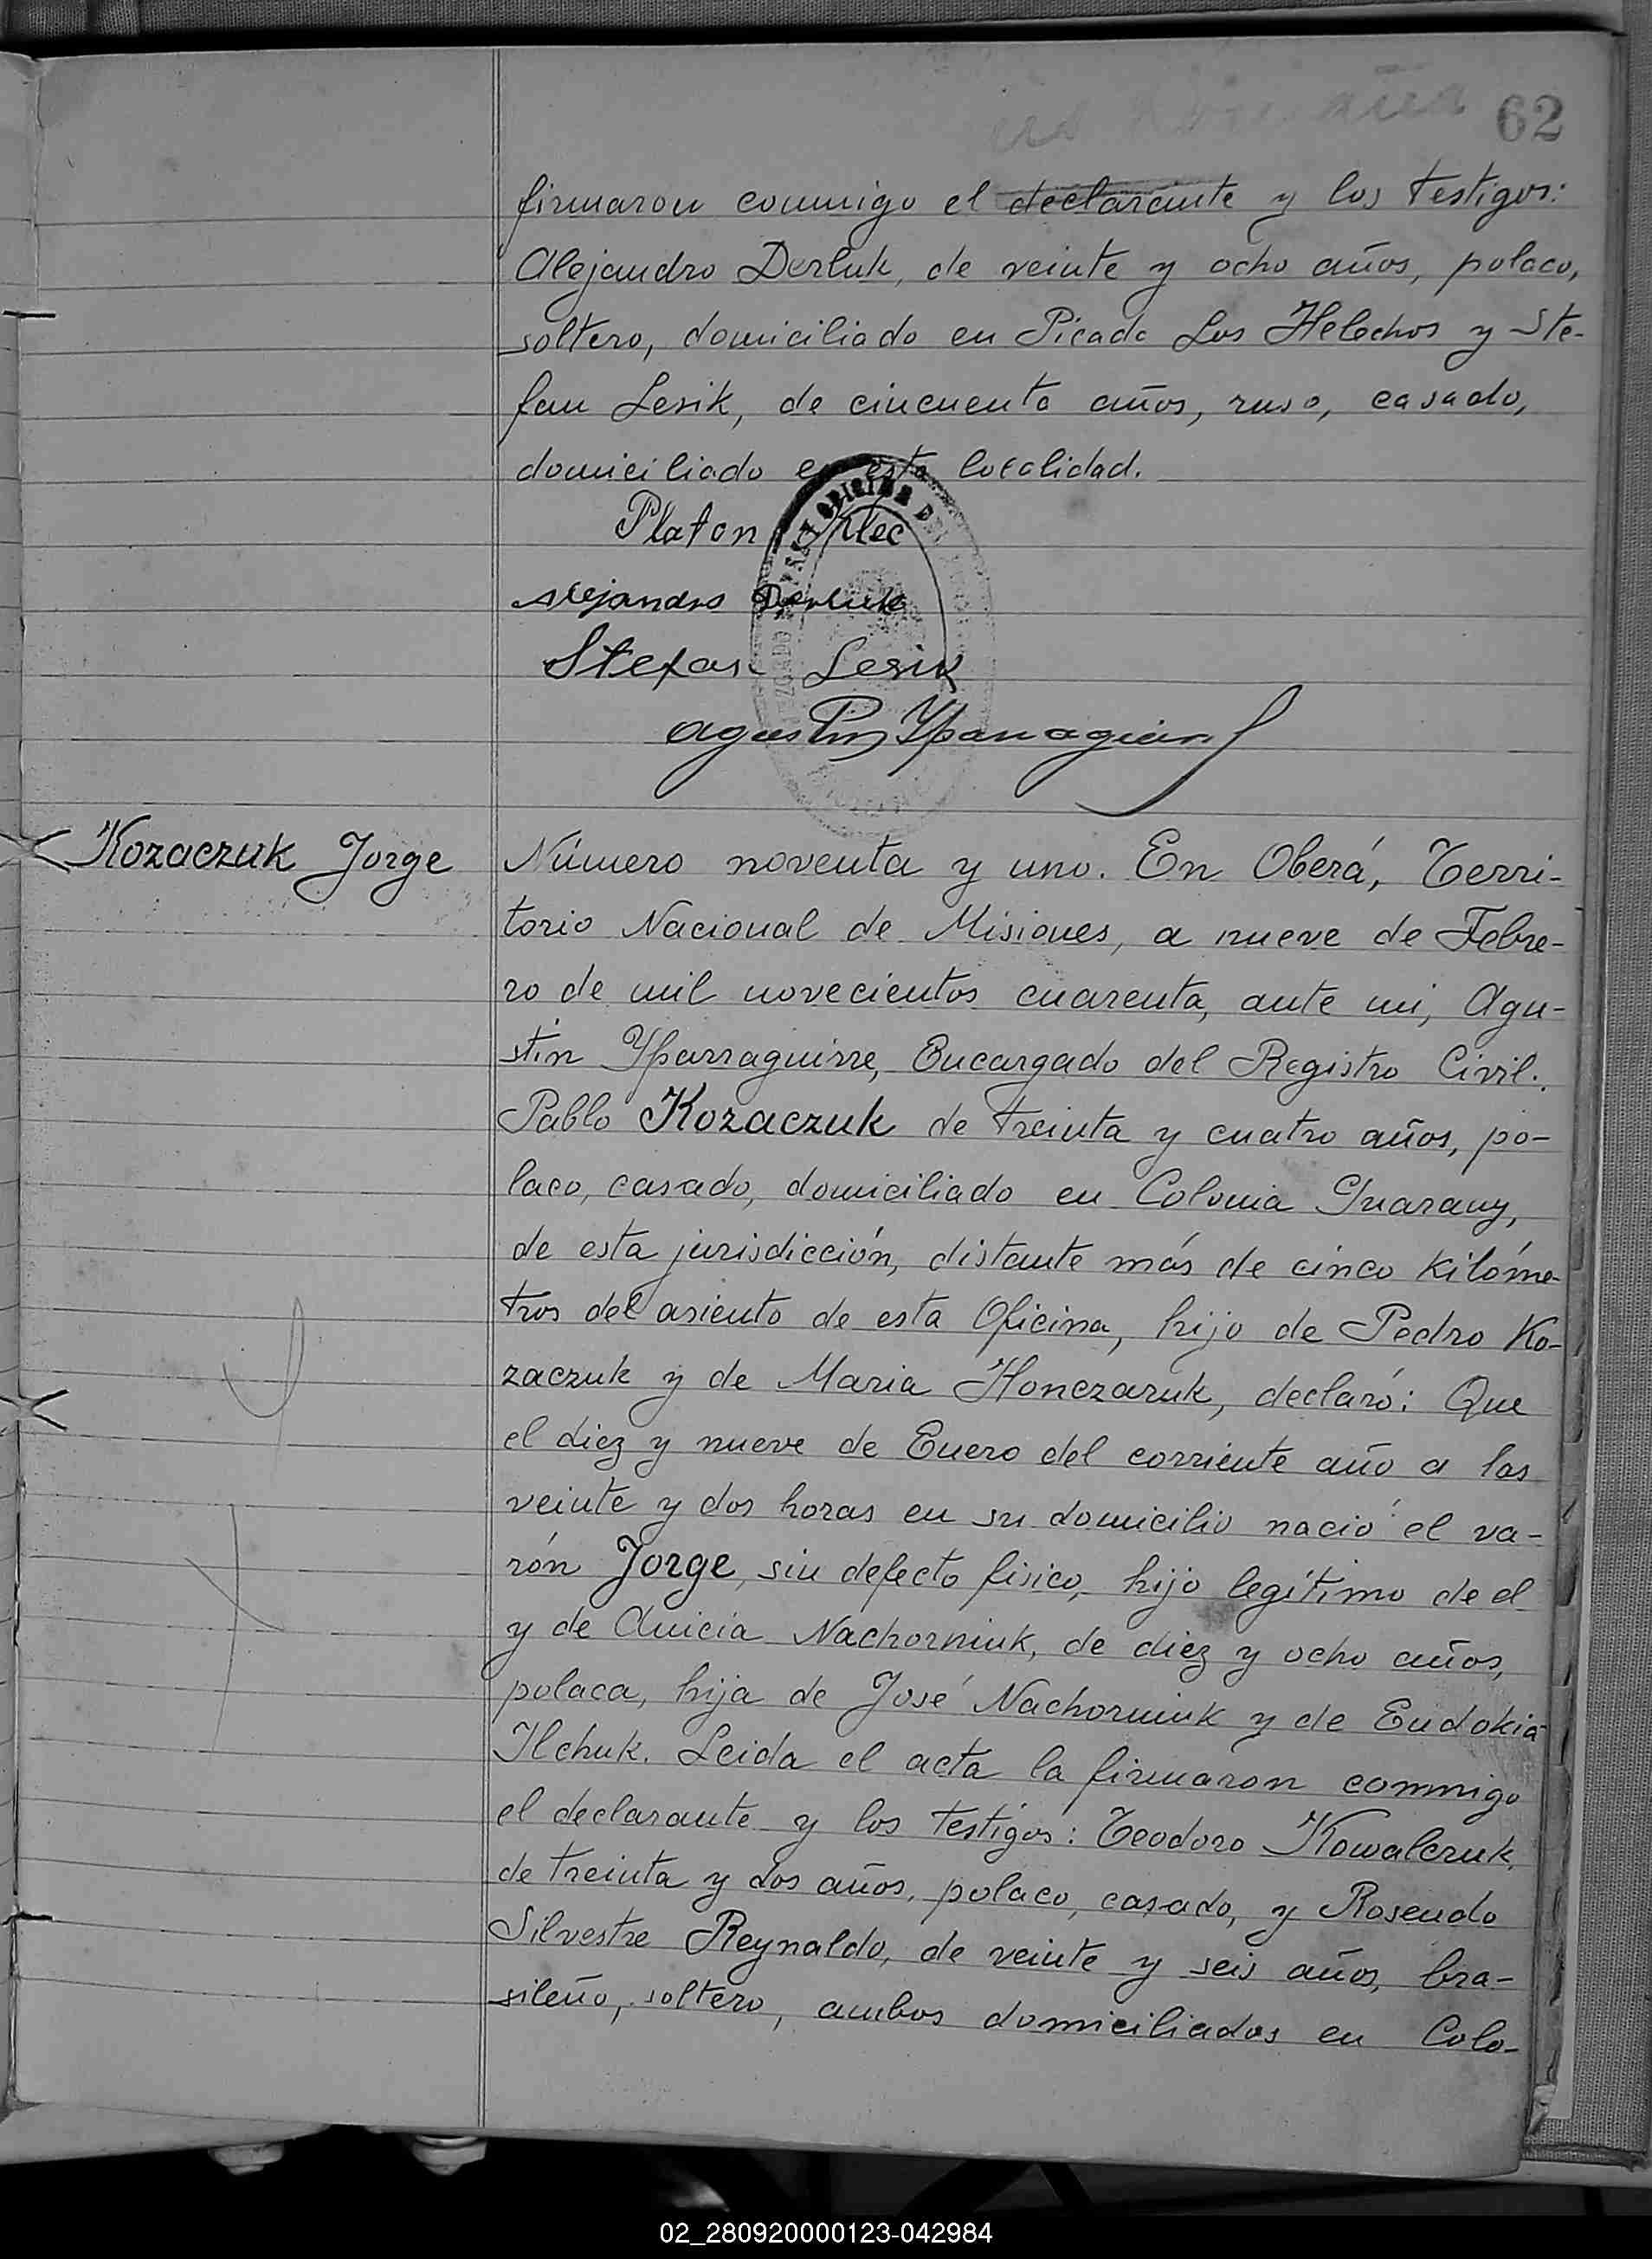 62
firmaron conmigo el declarante y los testigos:
Alejandro Derluk, de veinte y ocho años, polaco,
soltero, domiciliado en Picada Los Helechos y Ste-
fan Lesik, de cincuenta años, ruso, casado,
domiciliado en esta localidad.
Platon Klec
Alejandro Derluk
Stefan Lesik
Agustin Yparraguirre
Kozaczuk Jorge
Número noventa y uno. En Oberá, Terri-
torio Nacional de Misiones, a nueve de Febre-
ro de mil novecientos cuarenta, ante mi, Agu-
stin Yparraguirre, Encargado del Registro Civil.
Pablo Kozaczuk de treinta y cuatro años, po-
laco, casado, domiciliado en Colonia Guarany,
de esta jurisdicción, distante más de cinco kilóme-
tros del asiento de esta Oficina, hijo de Pedro Ko-
zaczuk y de Maria Honczaruk, declaró: Que
el diez y nueve de Enero del corriente año a las
veinte y dos horas en su domicilio nació el va-
rón Jorge, sin defecto fisico, hijo legítimo de el
y de Anicia Nachorniuk, de diez y ocho años,
polaca, hija de José Nachorniuk y de Eudokia
Ilchuk. Leida el acta la firmaron conmigo
el declarante y los testigos: Teodoro Kowalczuk,
de treinta y dos años, polaco, casado, y Rosendo
Silvestre Reynaldo, de veinte y seis años, bra-
sileño, soltero, ambos domiciliados en Colo-
02_280920000123-042984